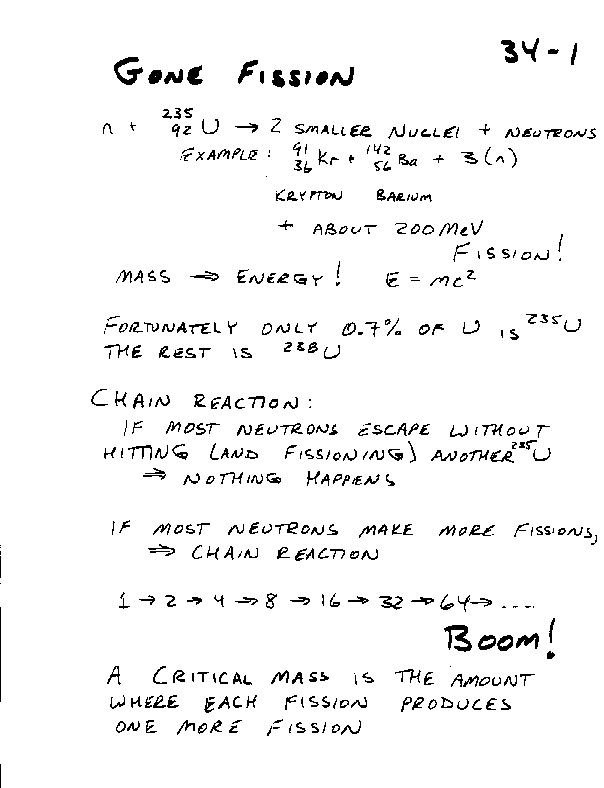 34-1
GONE FISSION
n + ²³⁵₉₂U → 2 SMALLER NUCLEI + NEUTRONS
EXAMPLE: ⁹¹₃₆Kr + ¹⁴²₅₆Ba + 3(n)
KRYPTON BARIUM
+ ABOUT 200 MeV
FISSION!
MASS ⇒ ENERGY! E = mc²
FORTUNATELY ONLY 0.7% OF U IS ²³⁵U
THE REST IS ²³⁸U
CHAIN REACTION:
IF MOST NEUTRONS ESCAPE WITHOUT
HITTING (AND FISSIONING) ANOTHER ²³⁵U
⇒ NOTHING HAPPENS
IF MOST NEUTRONS MAKE MORE FISSIONS,
⇒ CHAIN REACTION
1 → 2 → 4 → 8 → 16 → 32 → 64 → ....
BOOM!
A CRITICAL MASS IS THE AMOUNT
WHERE EACH FISSION PRODUCES
ONE MORE FISSION